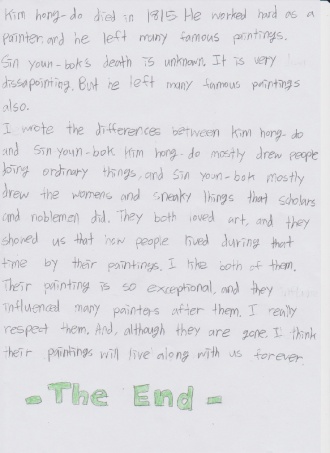 Kim hong-do died in 1815 He worked hard as a
Painter and he left many famous paintings.
Sin youn-bok's death is unknown. It is very
dissapointing. But he left many famous paintings
also.
I wrote the differences between Kim hong-do
and Sin youn-bok Kim hong-do mostly drew people
doing ordinary things, and Sin youn-bok mostly
drew the womens and sneaky things that scholars
and noblemen did. They both loved art, and they
showed us that how people lived during that
time by their paintings. I like both of them.
Their painting is so exceptional, and they
influenced many painters after them. I really
respect them. And, although they are gone. I think
their paintings will live along with us forever.
- The End -